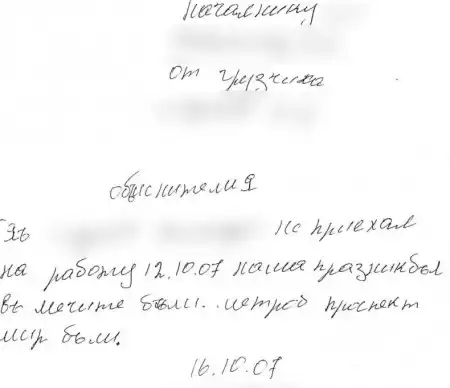 началнику
от грузчика
обяснителия
Я
не приехал
на работу 12.10.07 наша празник бил
въ мечите были.. метрой проспект
мир были.
16.10.07